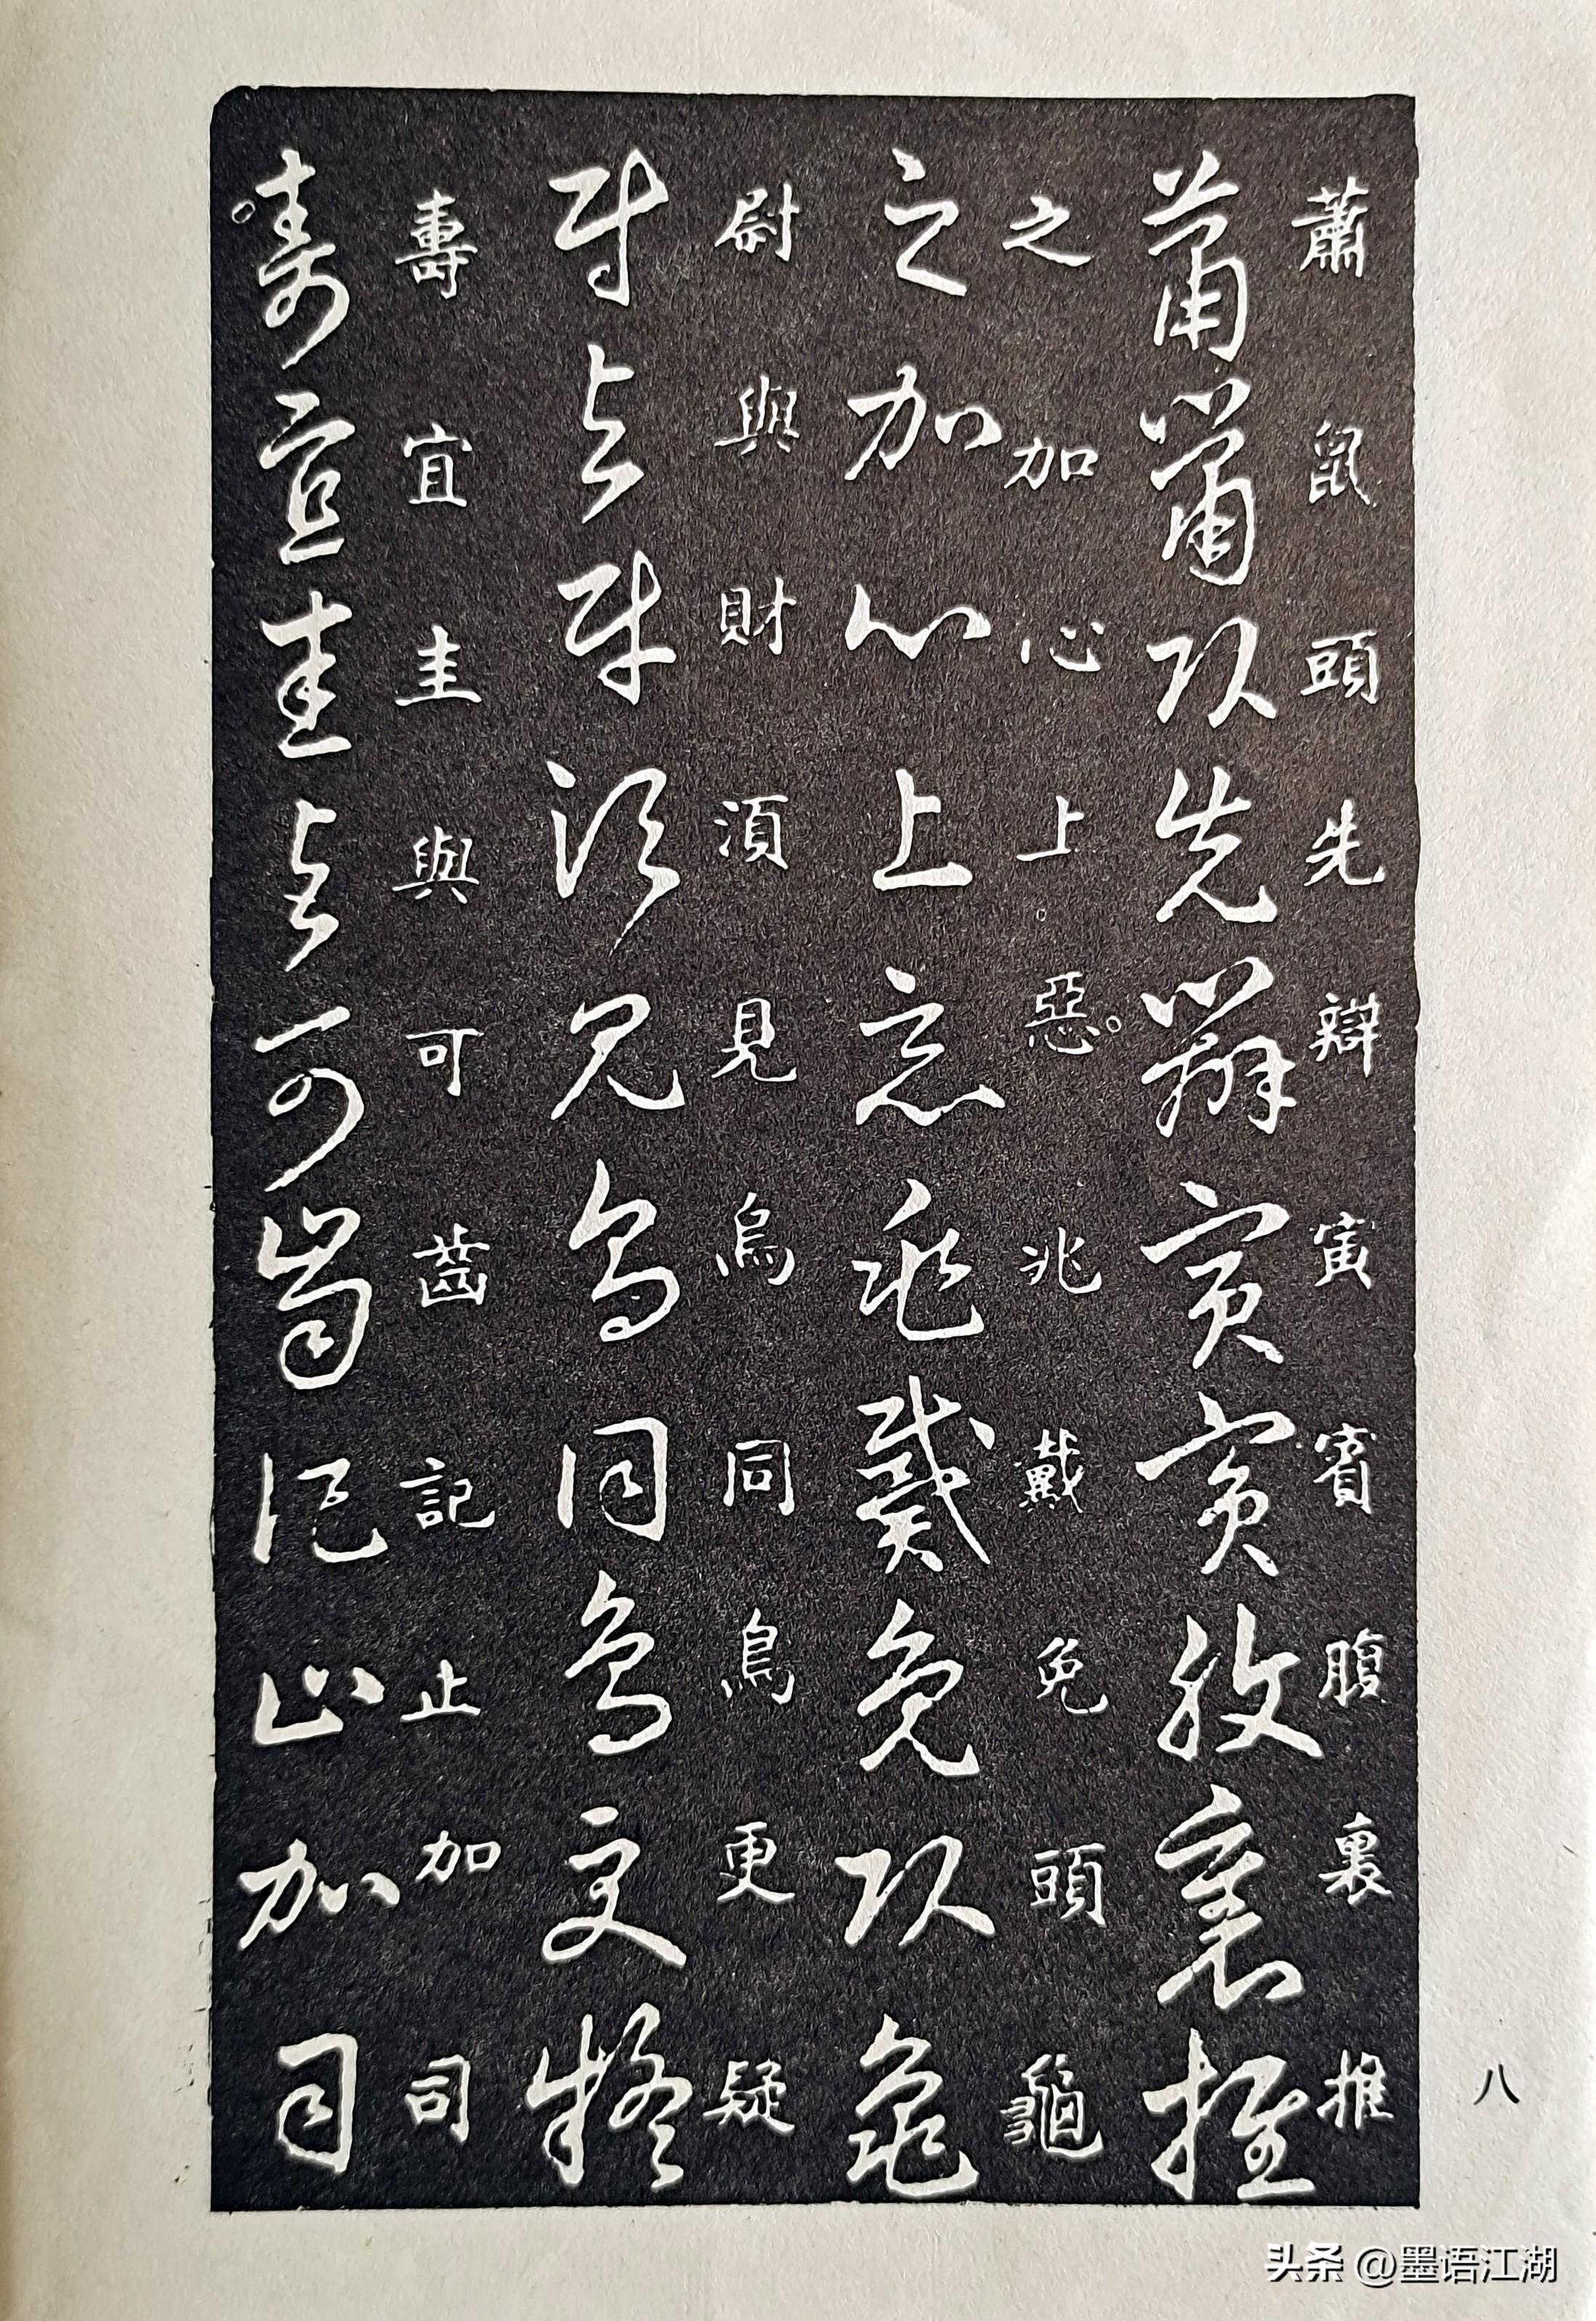 蕭鼠頭先辯寅賓腹裏推
蕭鼠頭先辯寅賓腹裏推
之加心上惡兆戴免頭龜
之加心上惡兆戴免頭龜
尉與財湏見烏同鳥更疑
尉與財湏見烏同鳥更疑
壽宜圭與可齒記止加司
壽宜圭與可齒記止加司
八
头条 @墨语江湖